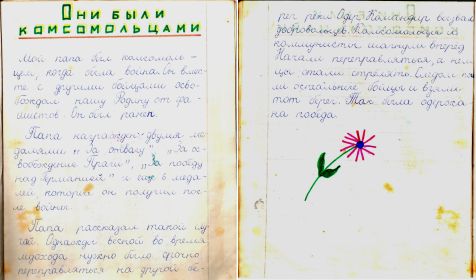 Они были
комсомольцами
Мой папа был комсомоль-
цем, когда была война. Он вмес-
те с другими бойцами осво-
бождал нашу Родину от фа-
шистов. Он был ранен.
Папа награжден двумя ме-
далями „За отвагу", „За ос-
вобождение Праги", „За победу
над Германией" и еще 6 медa-
лей, которые он получил пос-
ле войны.
Папа рассказал такой слу-
чай. Однажды весной во время
ледохода нужно было срочно
переправляться на другой бе-
рег реки Одер. Командир вызвал
добровольцев. Комсомольцы и
коммунисты шагнули вперед.
Начали переправляться, а нем-
цы стали стрелять. Следом пош-
ли остальные бойцы и взяли
тот берег. Так была одержа-
на победа.